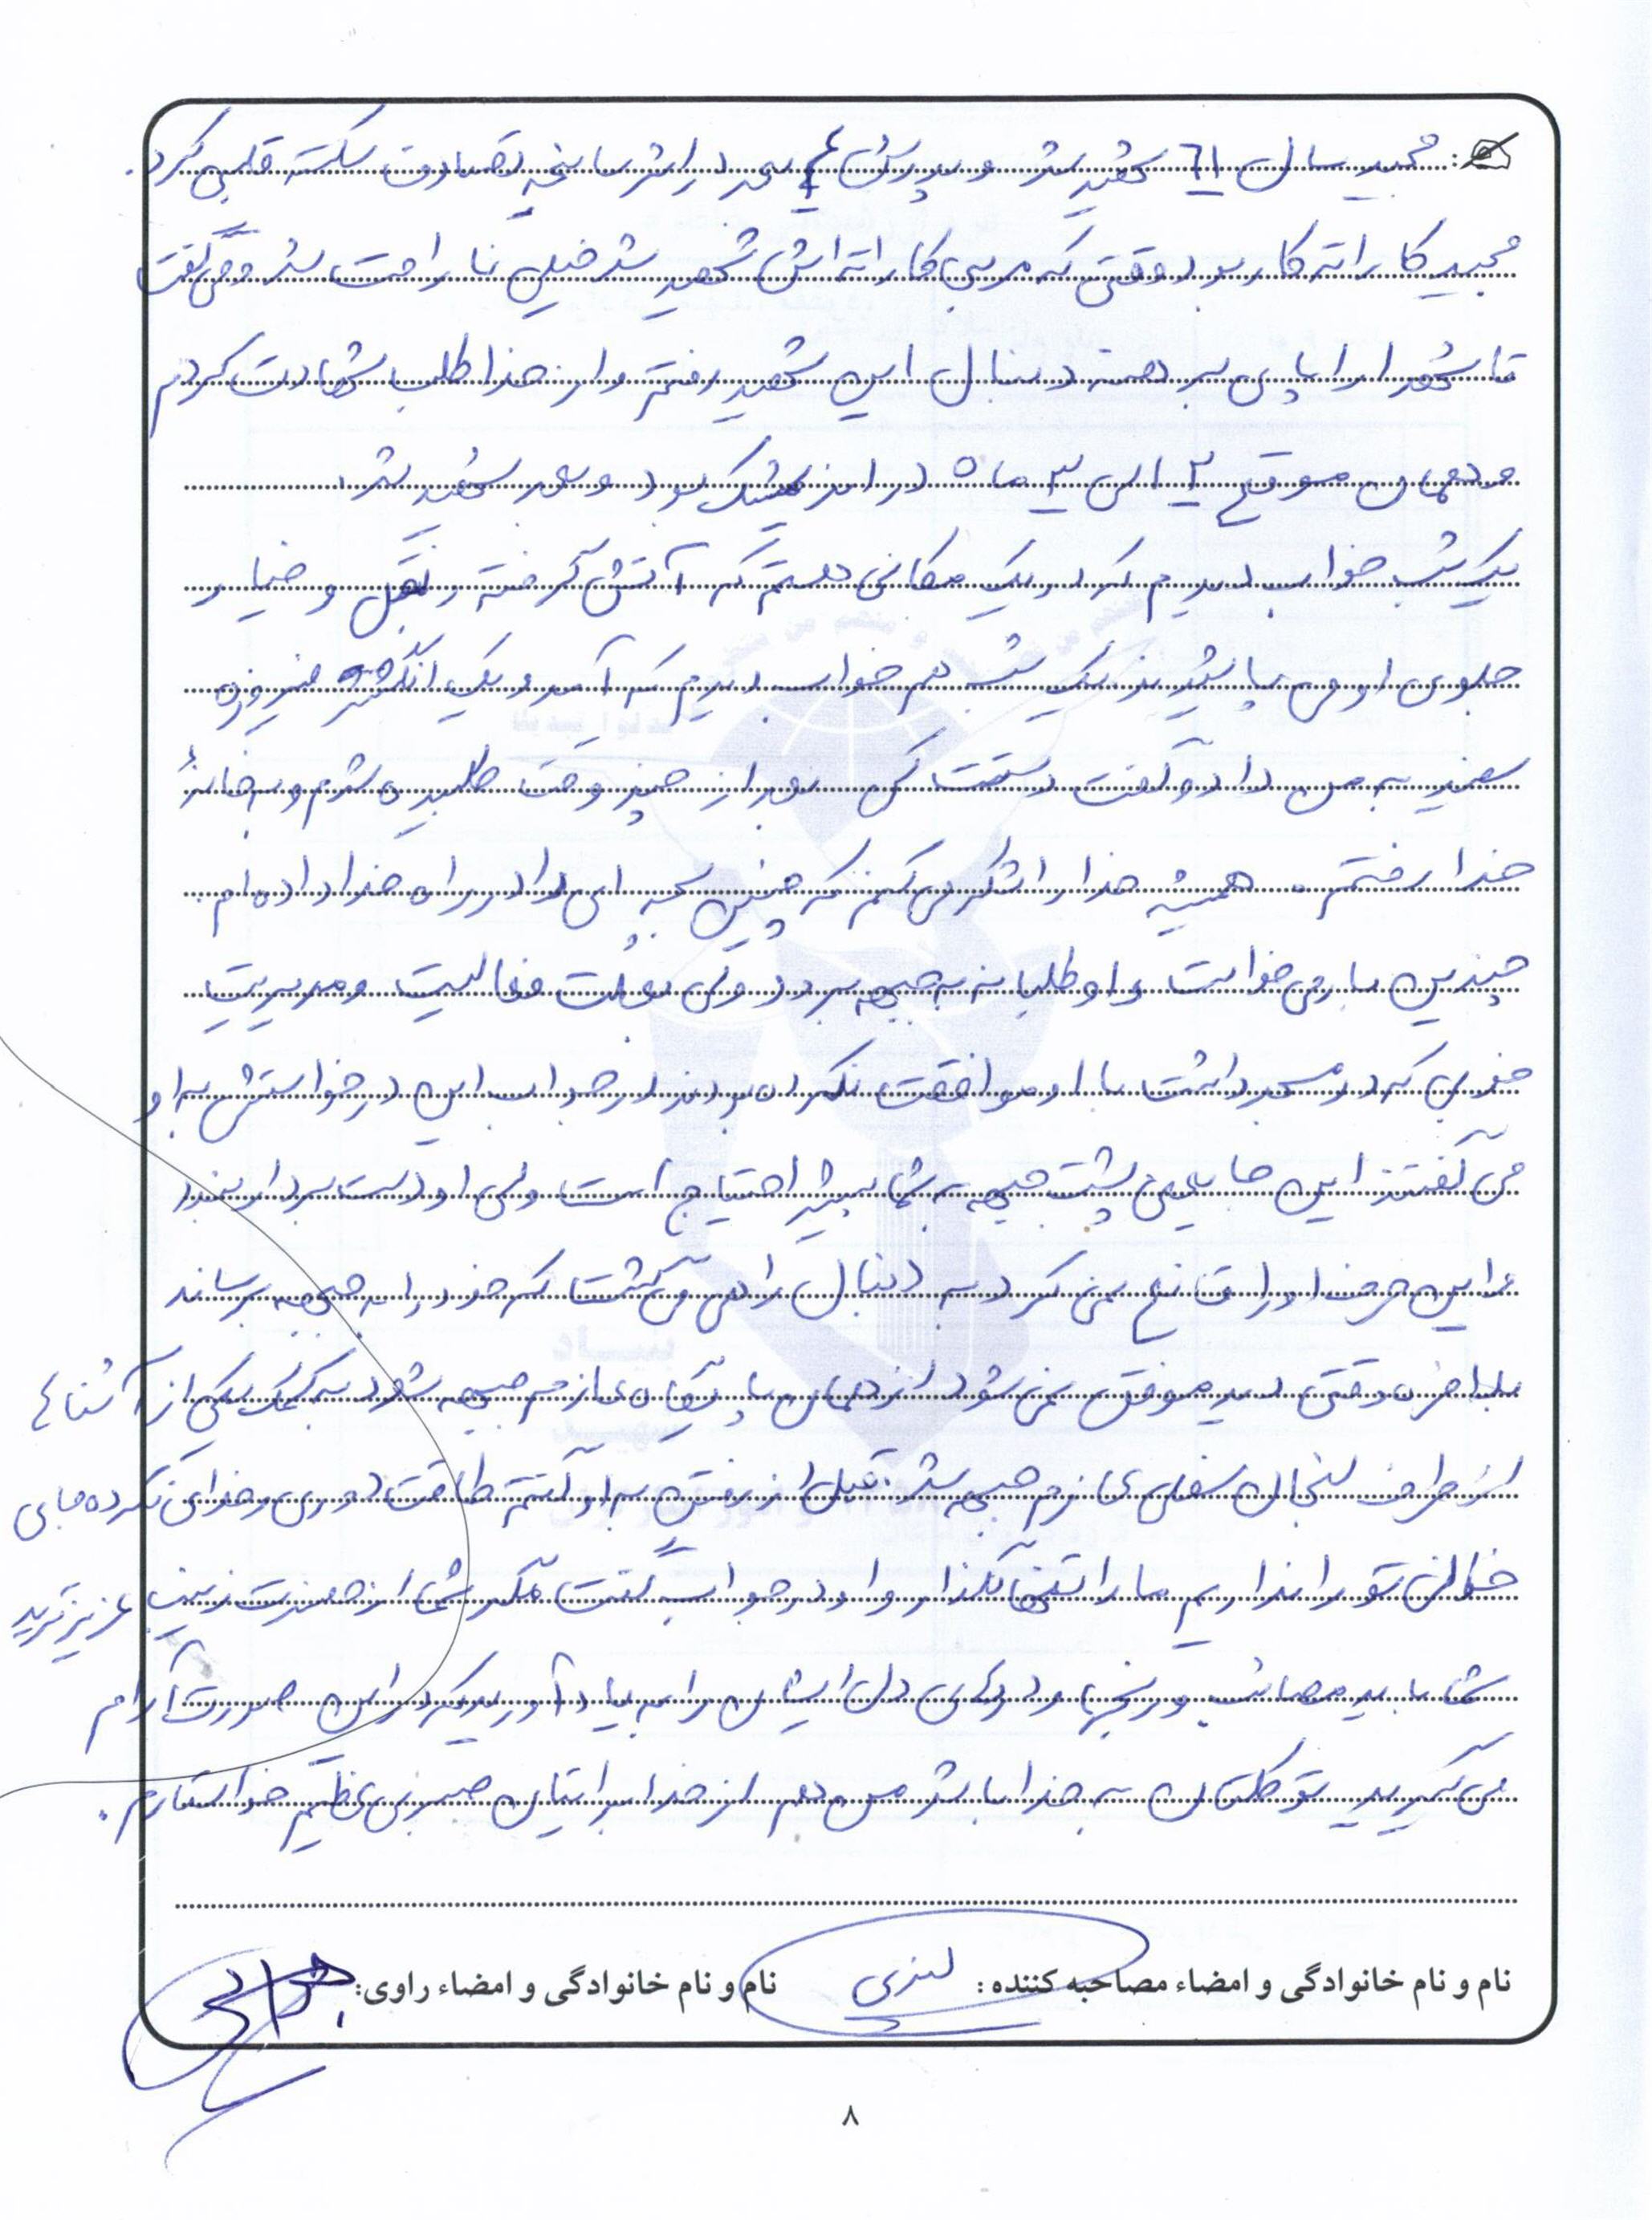 مجید سال ٦١ شهید شد و پدرش ٤ بعد در اثر سانحه تصادف سکته قلبی کرد.
مجید کاراته کار بود وقتی که مربی کاراته اش شهید شد خیلی ناراحت شد و می گفت
تا شهدا را با پای برهنه دنبال این شهید رفتم و از خدا طلب شهادت کردم
و همان موقع ٢ الی ٣ ماه در اندیمشک بود و بعد شهید شد.
یک شب خواب دیدم که در یک مکانی هستم که آتش گرفته و نقل و خیار
جلوی او می پاشیدند یک شب هم خواب دیدم که آمد و یک انگشتر فیروزه
سفید به من داد و گفت دستت کن بعد از چند وقت طلبیده شدم و به خانهٔ
خدا رفتم. همیشه خدا را شکر می کنم که چنین بچه ای را در راه خدا داده ام.
چندین بار می خواست داوطلبانه به جبهه برود ولی بعلت فعالیت و مدیریت
خوبی که در مسجد داشت با او موافقت نکرده بودند در جواب این درخواستش به او
می گفتند این جا یعنی پشت جبهه به شما بیشتر احتیاج است ولی او دست بردار نبود
و این حرف او را قانع نمی کرد به دنبال راهی می گشت که خود را به جبهه برساند
بلاخره وقتی دید موفق نمی شود از همان پایگاه عازم جبهه شود به کمک یکی از آشناها
از طرف لنجان سفلی عازم جبهه شد. قبل از رفتن به او گفتم طاقت دوری و خدای نکرده جای
خالی تو را نداریم ما را تنها نگذار و او در جواب گفت مگر شما از حضرت زینب عزیزترید
شما باید مصائب و رنجها و دردهای دل ایشان را به یاد آورید که در این صورت آرام
می گیرید توکلتان به خدا باشد من هم از خدا برایتان صبری عظیم خواستارم.
نام و نام خانوادگی و امضاء مصاحبه کننده : نام و نام خانوادگی و امضاء راوی:
٨